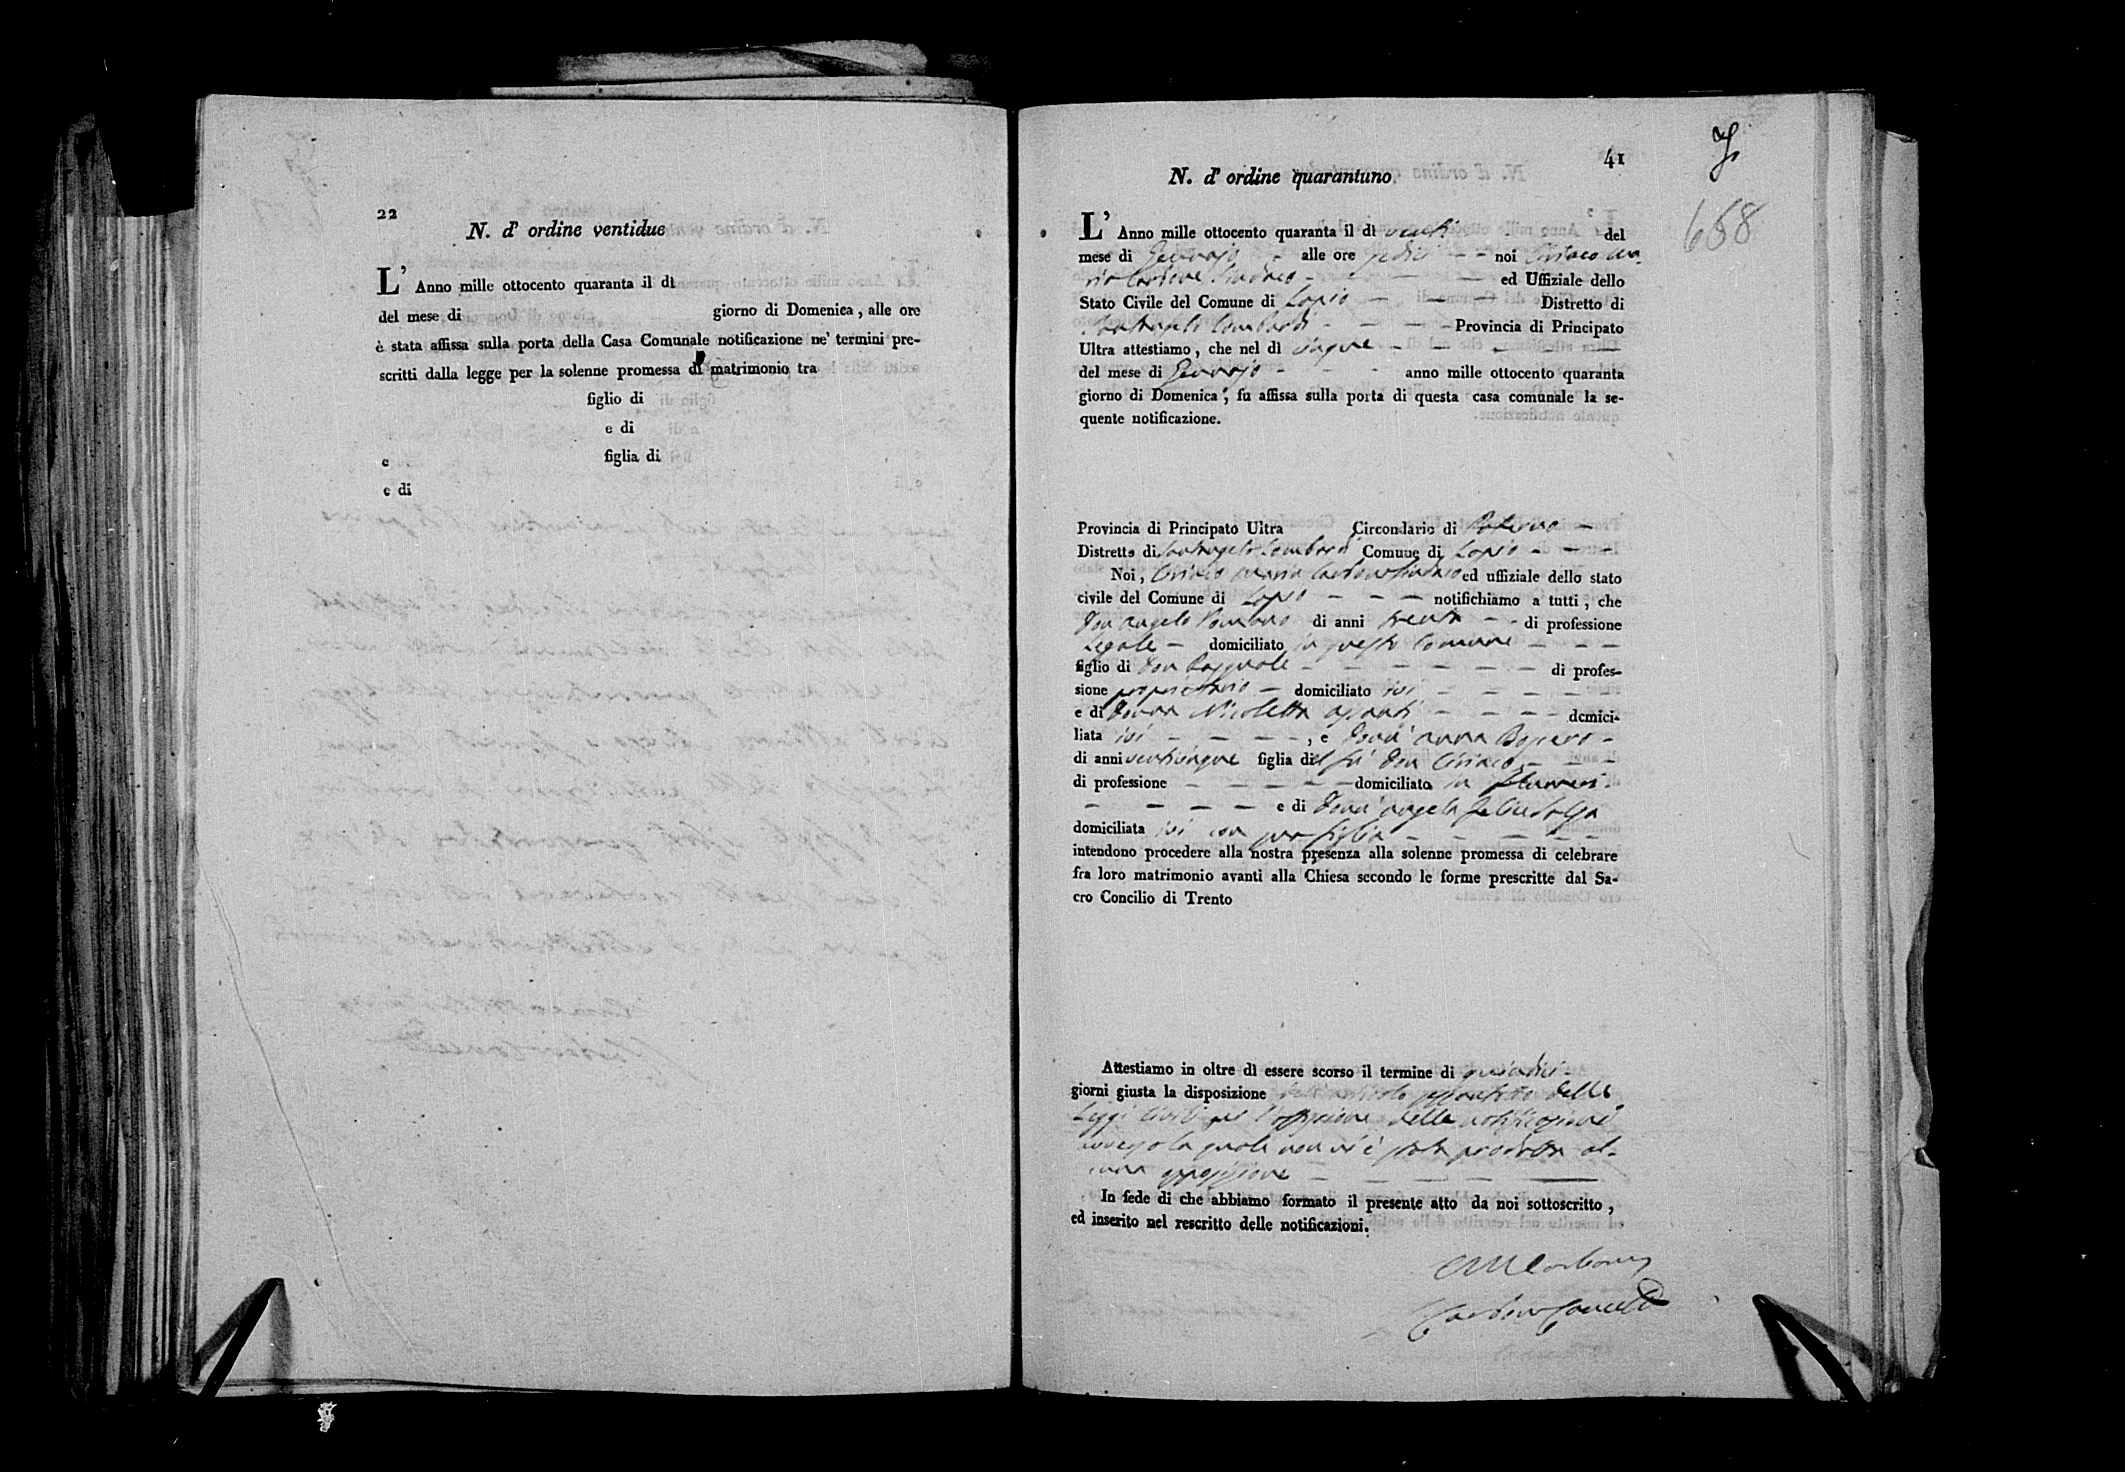 22
N. d' ordine ventidue
L' Anno mille ottocento quaranta il dì
del mese di giorno di Domenica, alle ore
è stata affissa sulla porta della Casa Comunale notificazione ne' termini pre-
scritti dalla legge per la solenne promessa di matrimonio tra
figlio di
e di
e figlia di
e di
41
N. d' ordine quarantuno
658
L' Anno mille ottocento quaranta il dì venti del
mese di Gennajo - alle ore sedici - - noi Ciriaco Ma-
ria Carbone Sindaco - - - - ed Uffiziale dello
Stato Civile del Comune di Lapio - - - Distretto di
Santangelo Lombardi - - - - Provincia di Principato
Ultra attestiamo, che nel dì cinque - - - - -
del mese di Gennajo - - - anno mille ottocento quaranta
giorno di Domenica, fu affissa sulla porta di questa casa comunale la se-
quente notificazione.
Provincia di Principato Ultra Circondario di Paterno -
Distretto di Santangelo Lombardi Comune di Lapio - - -
Noi, Ciriaco Maria Carbone Sindaco ed uffiziale dello stato
civile del Comune di Lapio - - - notifichiamo a tutti, che
Don Angelo di anni trenta - - di professione
Legale - domiciliato in questo Comune - - -
figlio di Don Pasquale - - - - - - di profes-
sione proprietario - domiciliato ivi - - - - -
e di Donna Nicoletta - - - - domici-
liata ivi - - - -, e Donn' Anna
di anni venticinque figlia del fù Don Ciriaco - - -
di professione - - - - - domiciliato in
- - - - e di Donn' Angela
domiciliata ivi con sua figlia - - - - -
intendono procedere alla nostra presenza alla solenne promessa di celebrare
fra loro matrimonio avanti alla Chiesa secondo le forme prescritte dal Sa-
cro Concilio di Trento
Attestiamo in oltre dì essere scorso il termine di quindici
giorni giusta la disposizione dell'articolo delle
Leggi Civili per l'affissione delle notificazioni
la quale non vi è stata prodotta al-
cuna opposizione - - - - -
In fede di che abbiamo formato il presente atto da noi sottoscritto,
ed inserito nel rescritto delle notificazioni.
CM Carbone
Carbone